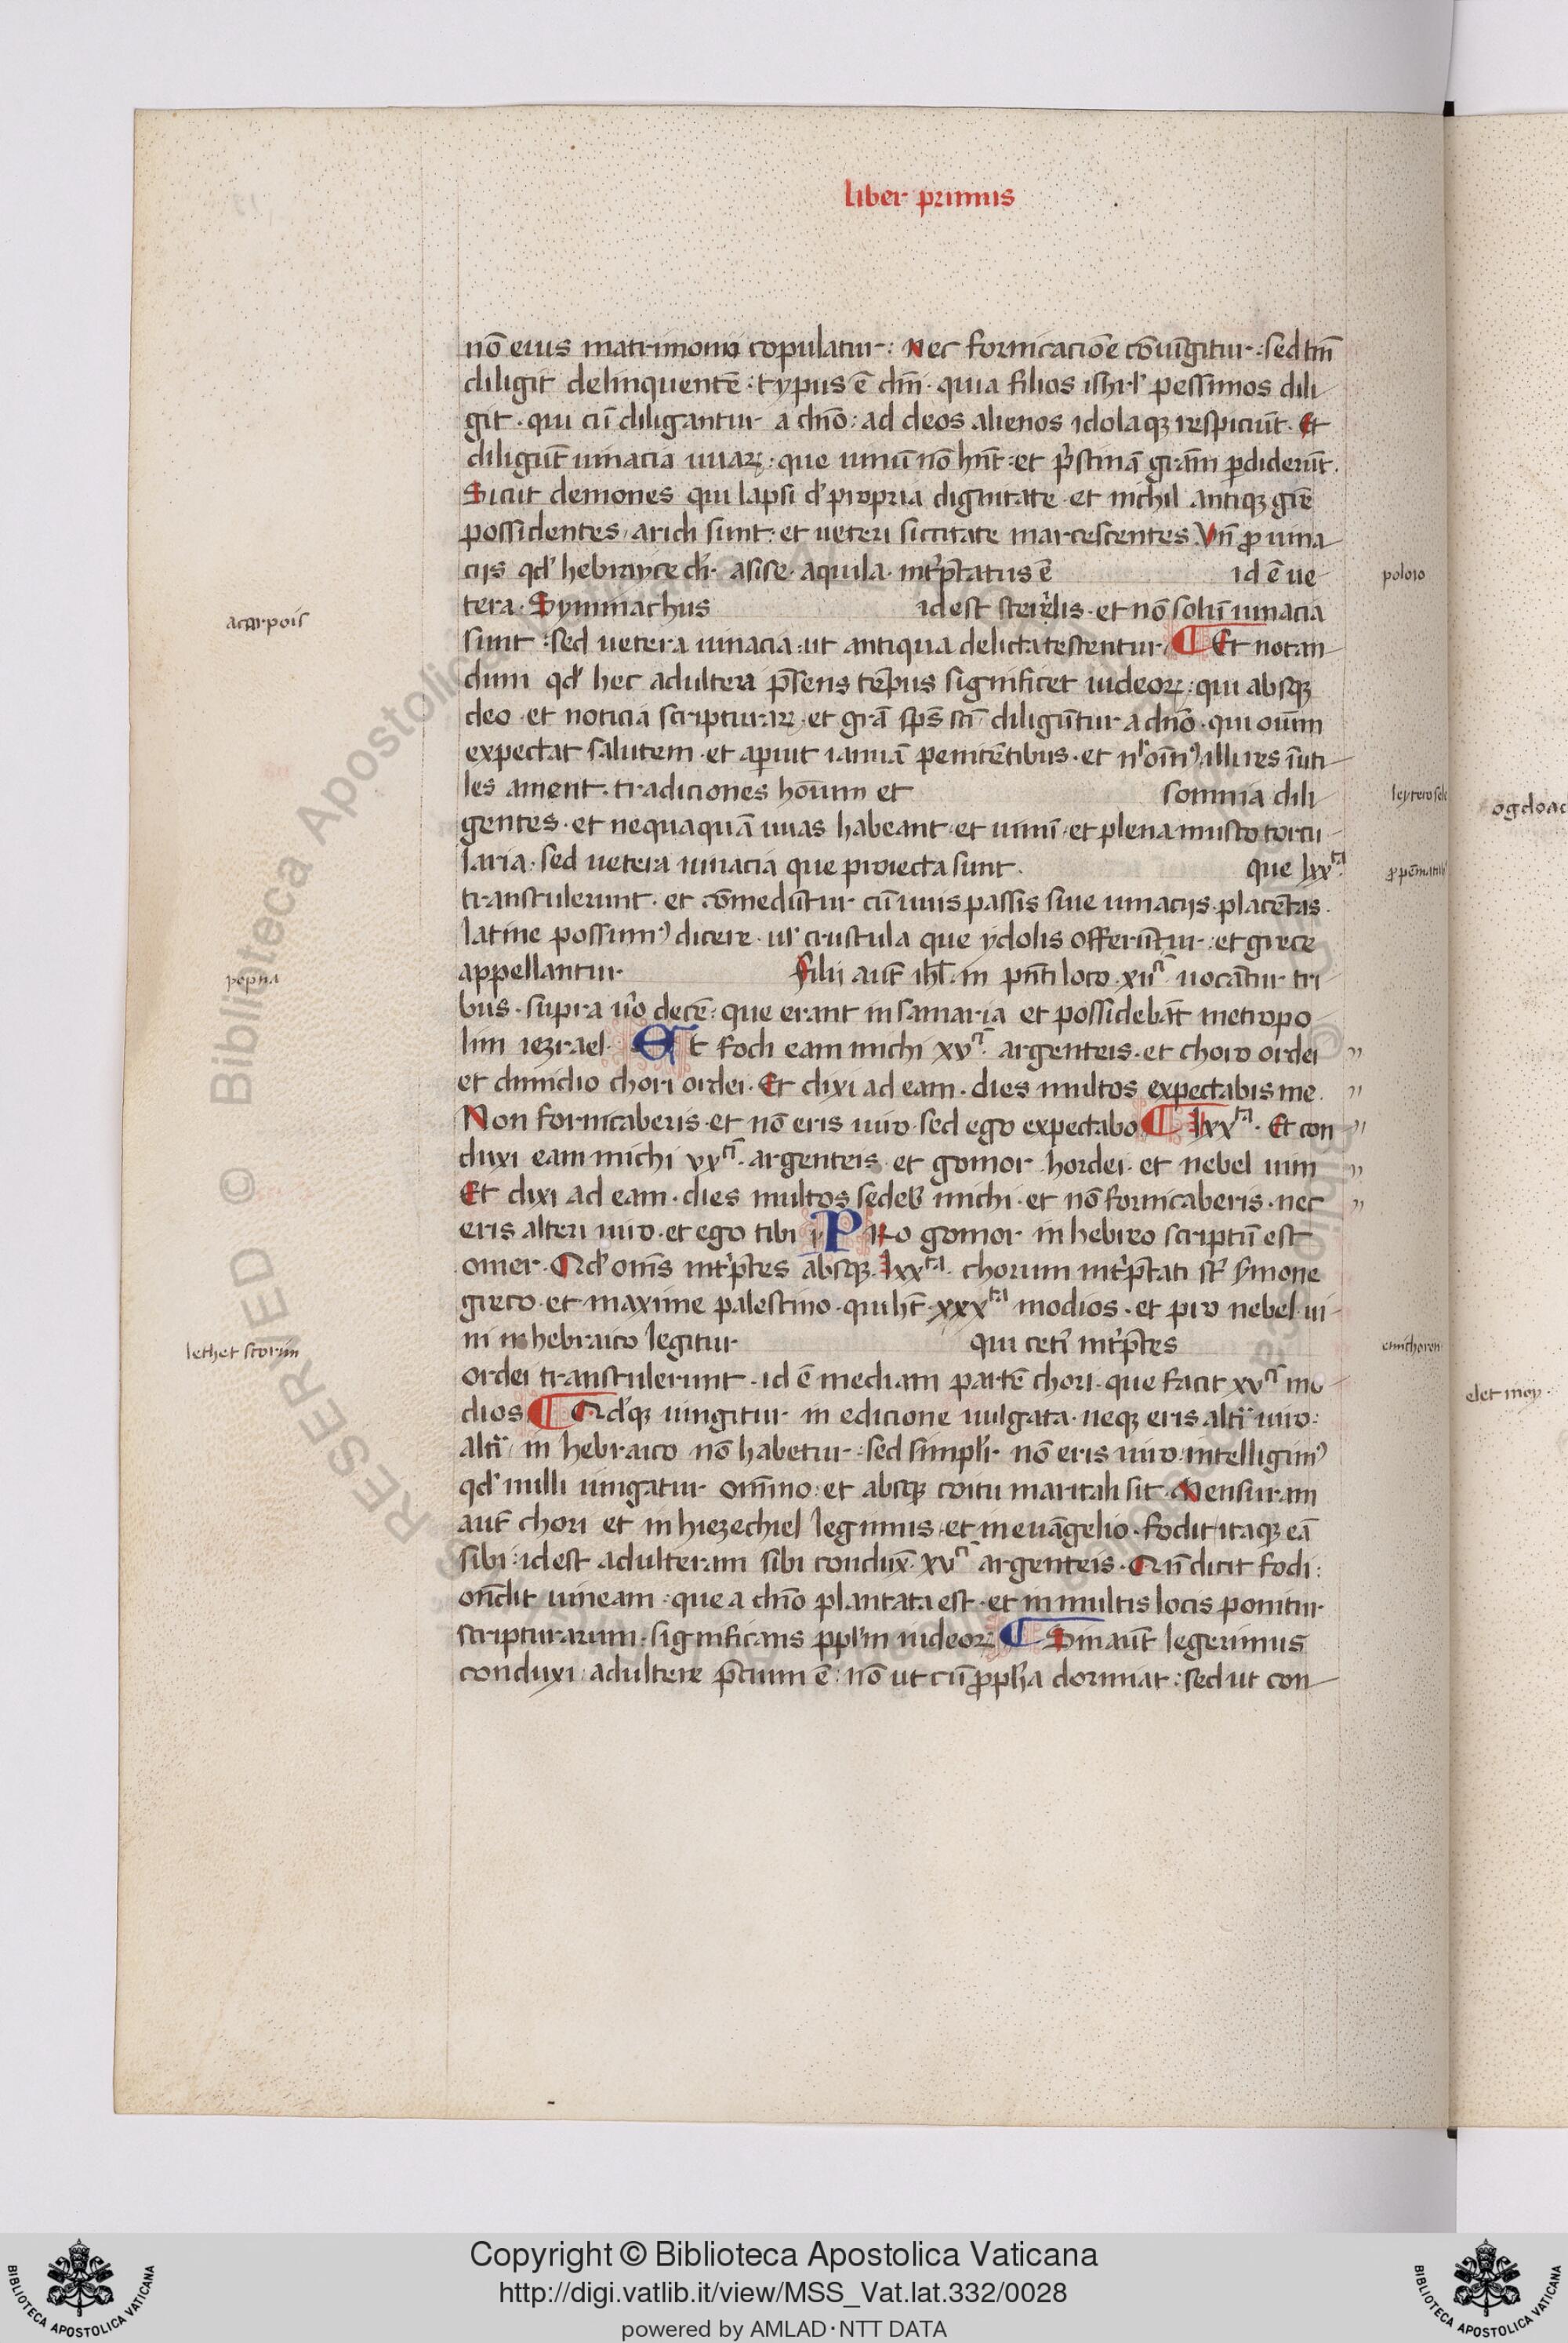 liber primus
nō eius matrimonio copulatur: nec fornicacioē cōiūgitur: sed tm̄
diligit delinquentē: typus ē dm̄. quia filios isrl' pessimos dili
git. qui cū diligantur a dn̄o: ad deos alienos idolaqꝫ respiciūt. Et
diligūt uinacia uuaꝝ: que uinū nō hn̄t: et p'stinā gram̄ ꝑdiderūt.
Sicut demones qui lapsi d' propria dignitate et nichil antiqꝫ gr̄e
possidentes, aridi sunt: et ueteri siccitate marcescentes. Vn̄ ꝓ uina
ciis qd' hebrayce dr̄. asise. aquila. int'p̄tatus ē id ē ue
poloio
tera. Symmachus idest sterilis. et nō solū uinacia
acarpois
sunt: sed uetera uinacia: ut antiqua delicta testentur. ¶ Et notan
dum qd' hec adultera p̄sens tēpus significet iudeoꝝ: qui absqꝫ
deo. et noticia scripturaꝝ. et grā sp̄s sc̄i diligūtur a dn̄o. qui oium̄
expectat salutem. et aꝑuit ianuā penitētibus. et
les ament. tradiciones hoium̄ et somnia dili
gentes. et nequaquā uuas habeant et uinū. et plena musto torcu
laria. sed uetera uinacia que proiecta sunt. que lxxᵗᵃ
transtulerunt. et comedūtur cū uuis passis siue uinaciis. placētas
latine possumꝰ dicere. ul' crustula que ydolis offerūtur: et grece
appellantur Filii aut̄ ihl̄. in pn̄ti loco. xiiᶜⁱ̄. uocātur tri
popna
bus. supra u'o decē: que erant in samaria et possidebāt metropo
lim iezrael. Et fodi eam michi xvᶜⁱ̄. argenteis. et choro ordei
et dimidio chori ordei. Et dixi ad eam. dies multos expectabis me.
Non fornicaberis. et nō eris uiro. sed ego expectabo ¶ lxxᵗᵃ. Et con
duxi eam michi vxᶜⁱ̄. argenteis et gomor hordei. et nebel uini
Et dixi ad eam. dies multos sedeb' michi. et nō fornicaberis. nec
eris alteri uiro. et ego tibi i. PRo gomor in hebreo scriptū est
omer. Qd' om̄s int'p̄tes absqꝫ. lxxᵗᵃ. chorum int'p̄tati st̄ s'mone
greco. et maxime palestino. qui ht̄. xxxᵗᵃ modios. et pro nebel ui
ni in hebraico legitur qui cet'i int'p̄tes
lethet seorim
emichoron
ordei transtulerunt. id ē mediam partē chori. que facit xvᶜⁱ̄ mo
dios ¶ Qd'qꝫ iungitur in edicione uulgata. neqꝫ eris alt'i uiro:
alt'i in hebraico nō habetur: sed simplr̄. nō eris uiro. intelligimꝰ
qd' nulli iungatur om̄ino: et absqꝫ coitu maritali sit. Mensuram
aut̄ chori et in hiezechiel legimus. et in euāgelio. fodit itaqꝫ eā
sibi: idest adulteram sibi condux̄. xvᶜⁱ̄ argenteis. Qn̄ dicit fodi:
on̄dit uineam: que a dn̄o plantata est. et in multis locis ponitur
scripturarum. significans ppl'm iudeoꝝ ¶ Sin aut̄ legerimus
conduxi: adultere p̄cium ē: nō ut cū ꝓpha dormiat: sed ut con
ogdoac
Copyright © Biblioteca Apostolica Vaticana
http://digi.vatlib.it/view/MSS_Vat.lat.332/0028
powered by AMLAD·NTT DATA
BIBLIOTECA APOSTOLICA VATICANA
BIBLIOTECA APOSTOLICA VATICANA